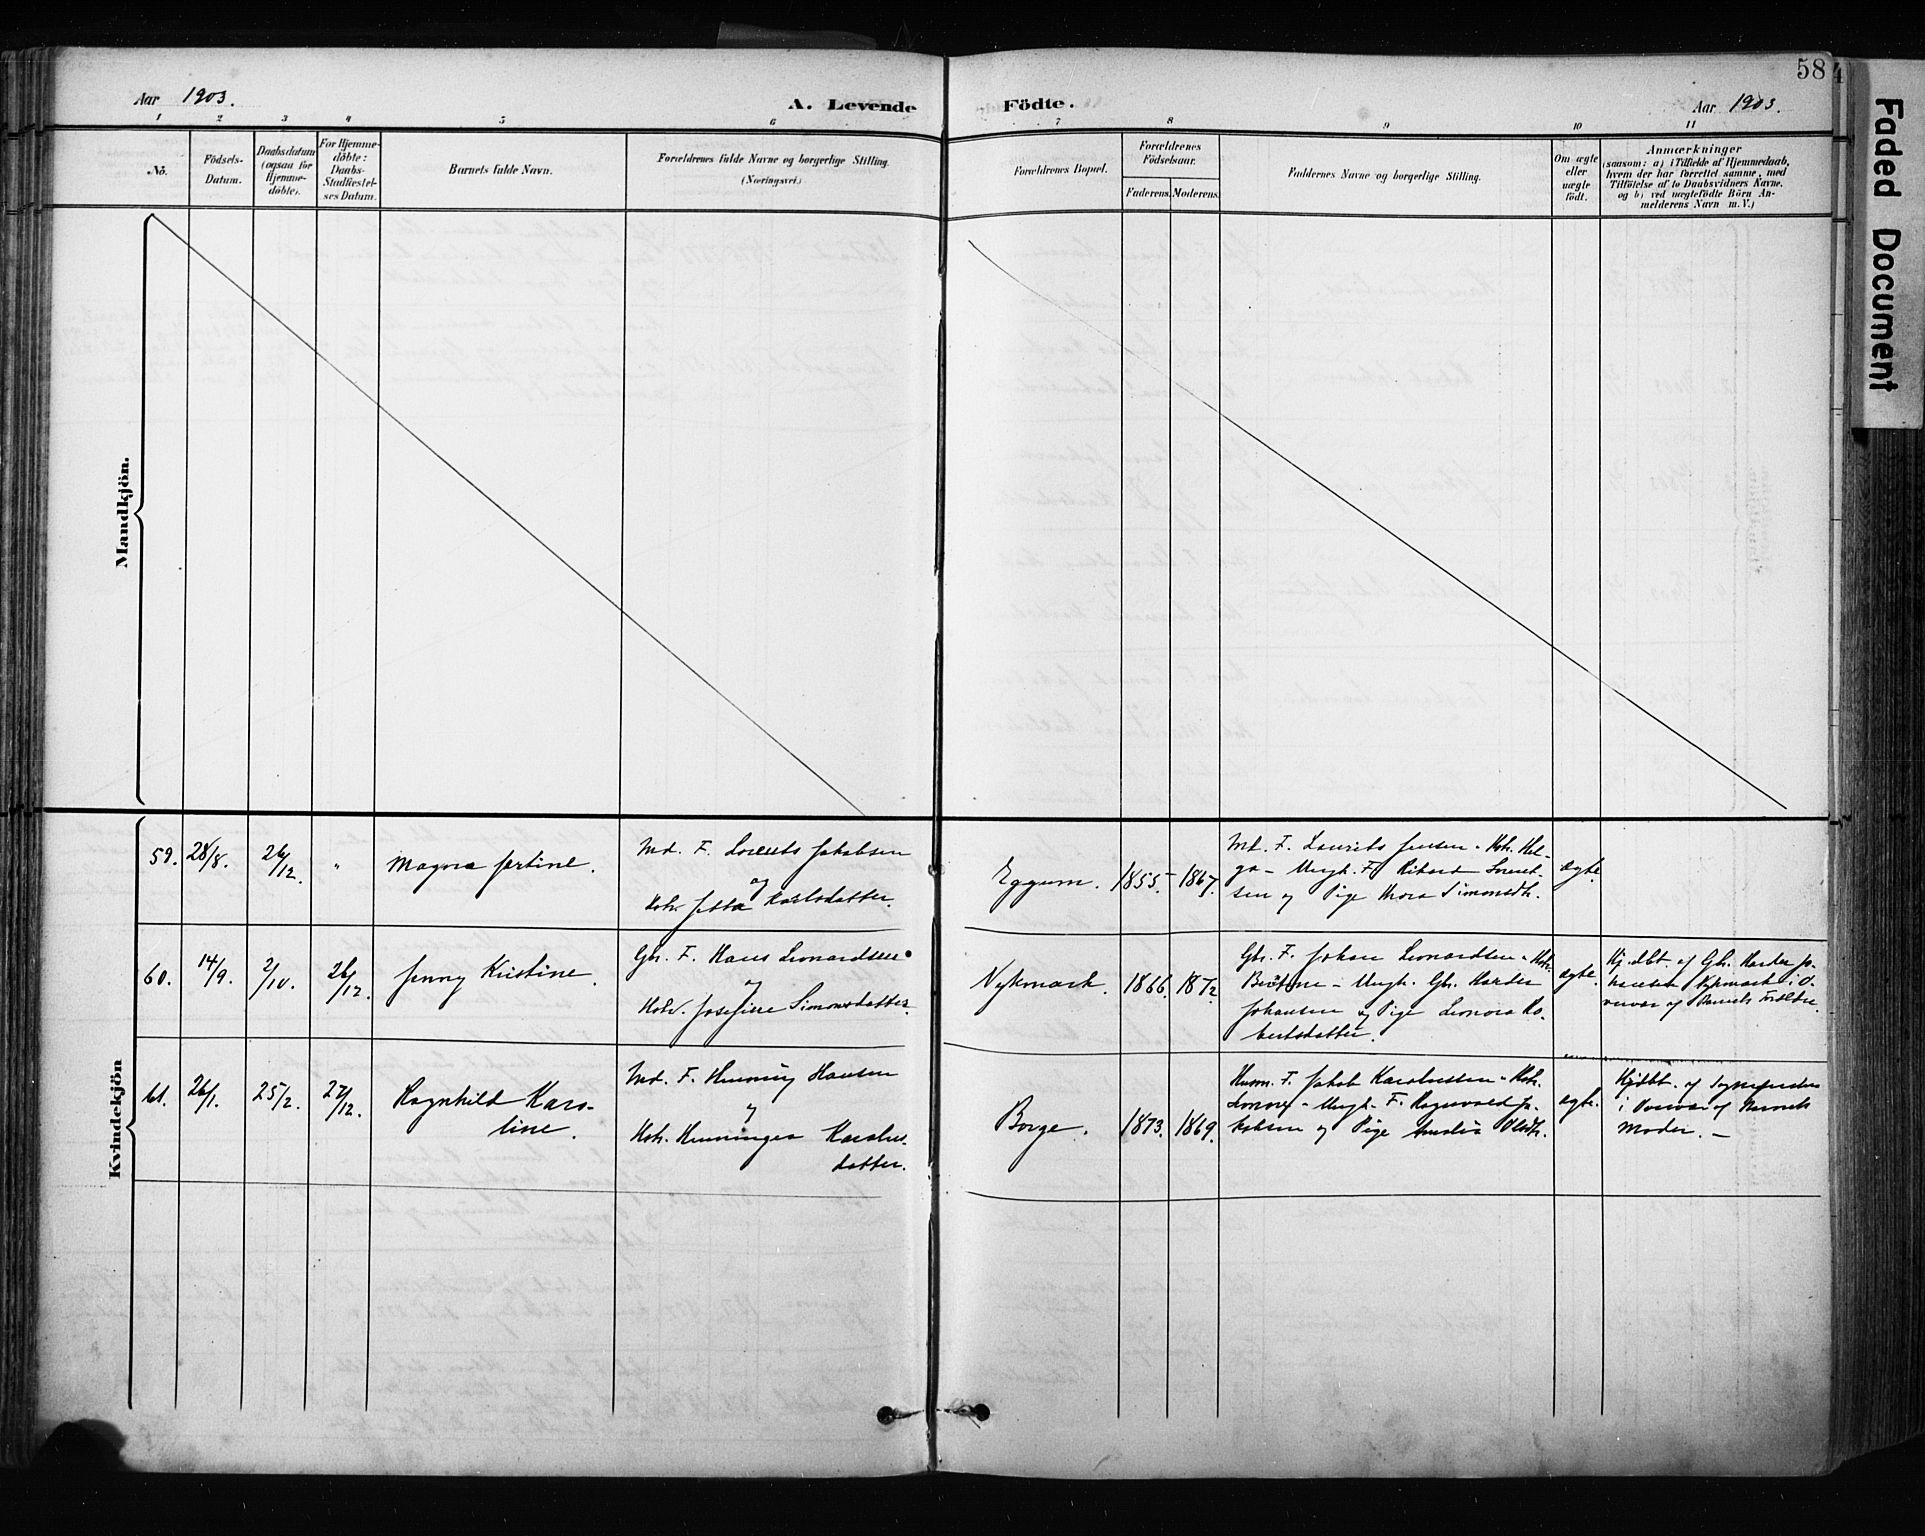 58
Faded Document
Aar 1903.
A. Levende Födte.
Aar 1903.
1 2 3 4 5 6 7 8 9 10 11
Nö.
Födsels-
Datum.
Daabsdatum
(ogsaa for
Hjemme-
döbte).
For Hjemme-
döbte:
Daabs-
Stadfæstel-
ses Datum.
Barnets fulde Navn.
Forældrenes fulde Navne og borgerlige Stilling.
(Næringsvei.)
Forældrenes Bopæl.
Forældrenes
Födselsaar.
Faderens. Moderens.
Faddernes Navne og borgerlige Stilling.
Om ægte
eller
uægte
födt.
Anmærkninger
(saasom: a) i Tilfælde af Hjemmedaab,
hvem der har forrettet samme, med
Tilföielse af to Daabsvidners Navne,
og b) ved uægtefödte Börn An-
melderens Navn m. V.)
Mandkjön.
Kvindekjön
59. 28/8. 26/12. "
Magna Jertine.
Md. F. Lorents Jakobsen
og
Jetta Karlsdatter.
Eggum. 1855. 1867.
Md. F. Laurits Jensen - Hel-
ga - Ungk. F. Rikard Lorent-
sen og Pige Thora Simonsdtr.
ægte
60. 14/9. 2/10. 26/12.
Jenny Kristine.
Gbr. F. Hans Leonardsen
og
Josefine Simonsdatter.
Nykmark. 1866. 1872.
Gbr. F. Johan Leonardsen -
- Ungk. Gbr. Harder
Johansen og Pige Leonora Ro-
bertsdatter.
ægte
Hj.dbt. af Gbr. Harder Jo-
hansen Nykmark i O-
vervær af Barnets Forældre.
61. 26/1. 25/2. 27/12.
Ragnhild Karo-
line.
Md. F. Henning Hansen
og
Henninger Karolius-
datter.
Borge. 1873. 1869.
F. Jakob -
- Ungk. F. Ragnvald Ja-
kobsen og Pige Amalia
ægte.
Hjdbt. af
i Overvær af Barnets
Moder. -